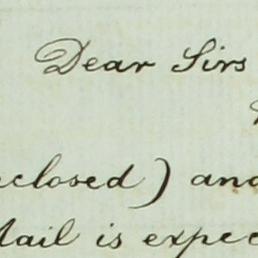 Dear Sirs
closed) and
Mail is expec